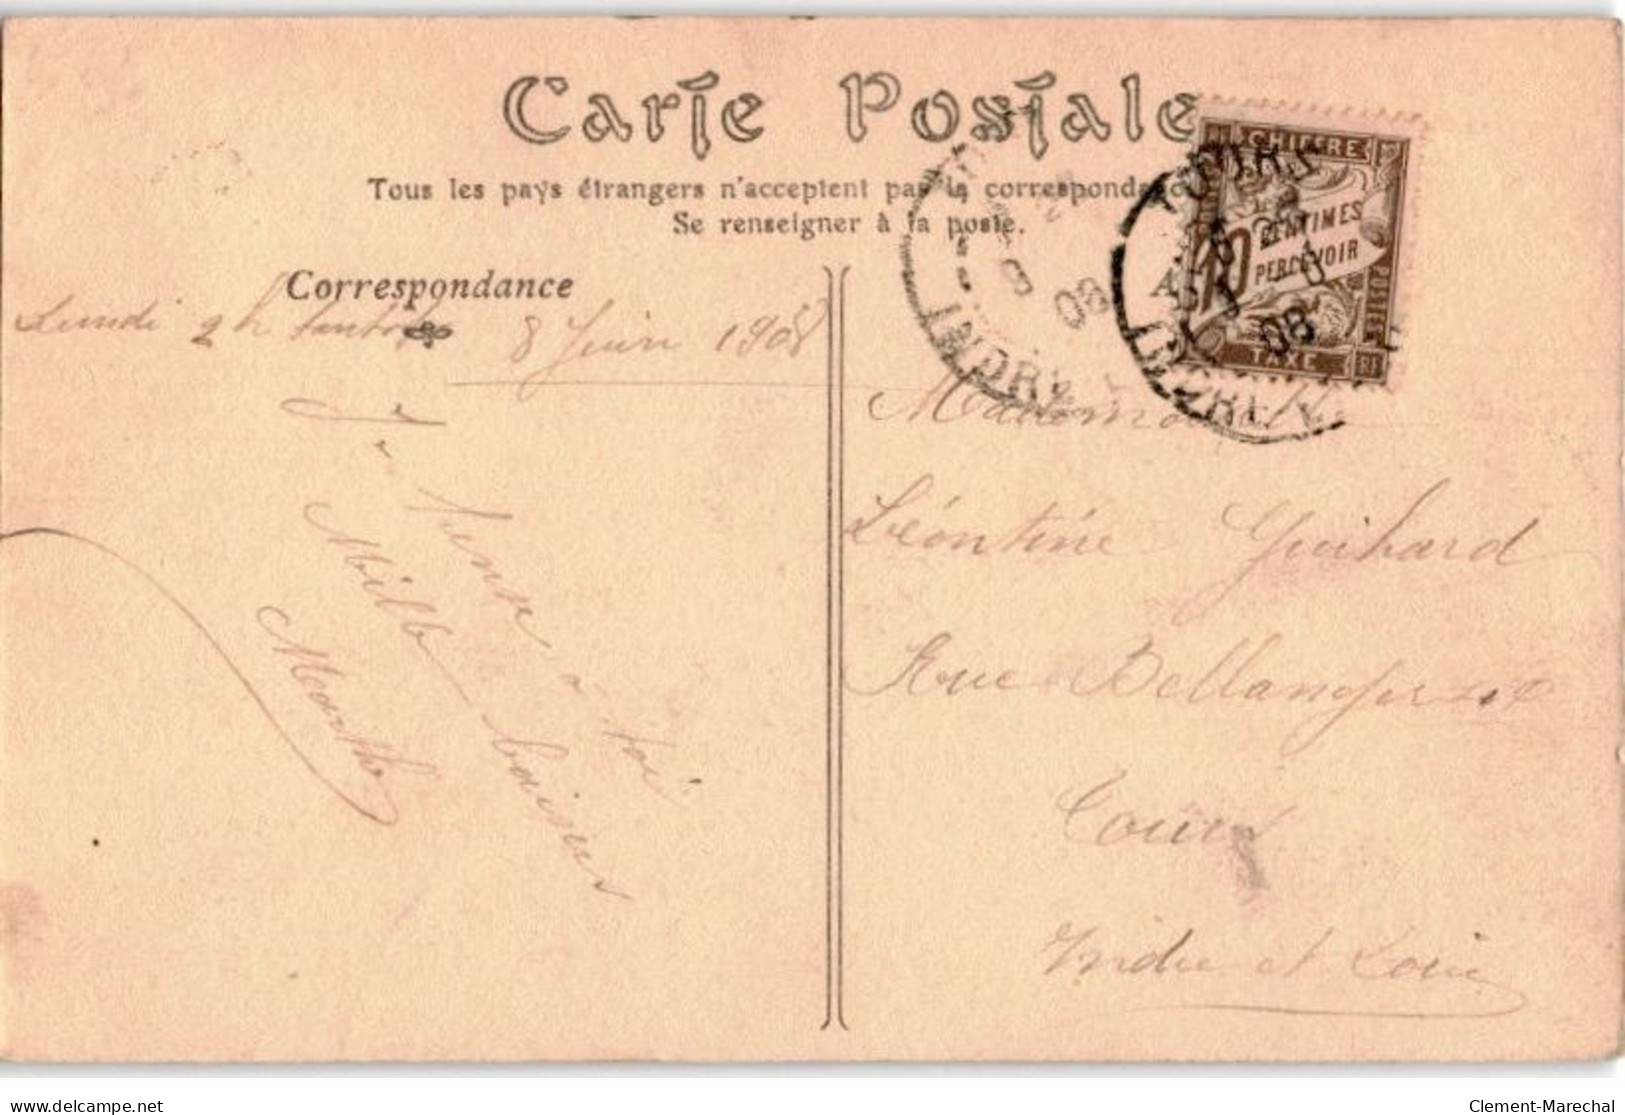 Carte Postale
Tous les pays étrangers n'acceptent pas la correspondance
Se renseigner à la poste.
Correspondance
Lundi 2h 8 Juin 1908
Je pense à toi
Mille baisers
Marthe
CHIFFRE
10 CENTIMES
PERCEVOIR
POSTES
TAXE
RF
08
INDRE
08
INDRE
Mademoiselle
Léontine Guihard
Rue Bellanger
Tours
Indre et Loire
delcampe.net
Clement-Marechal